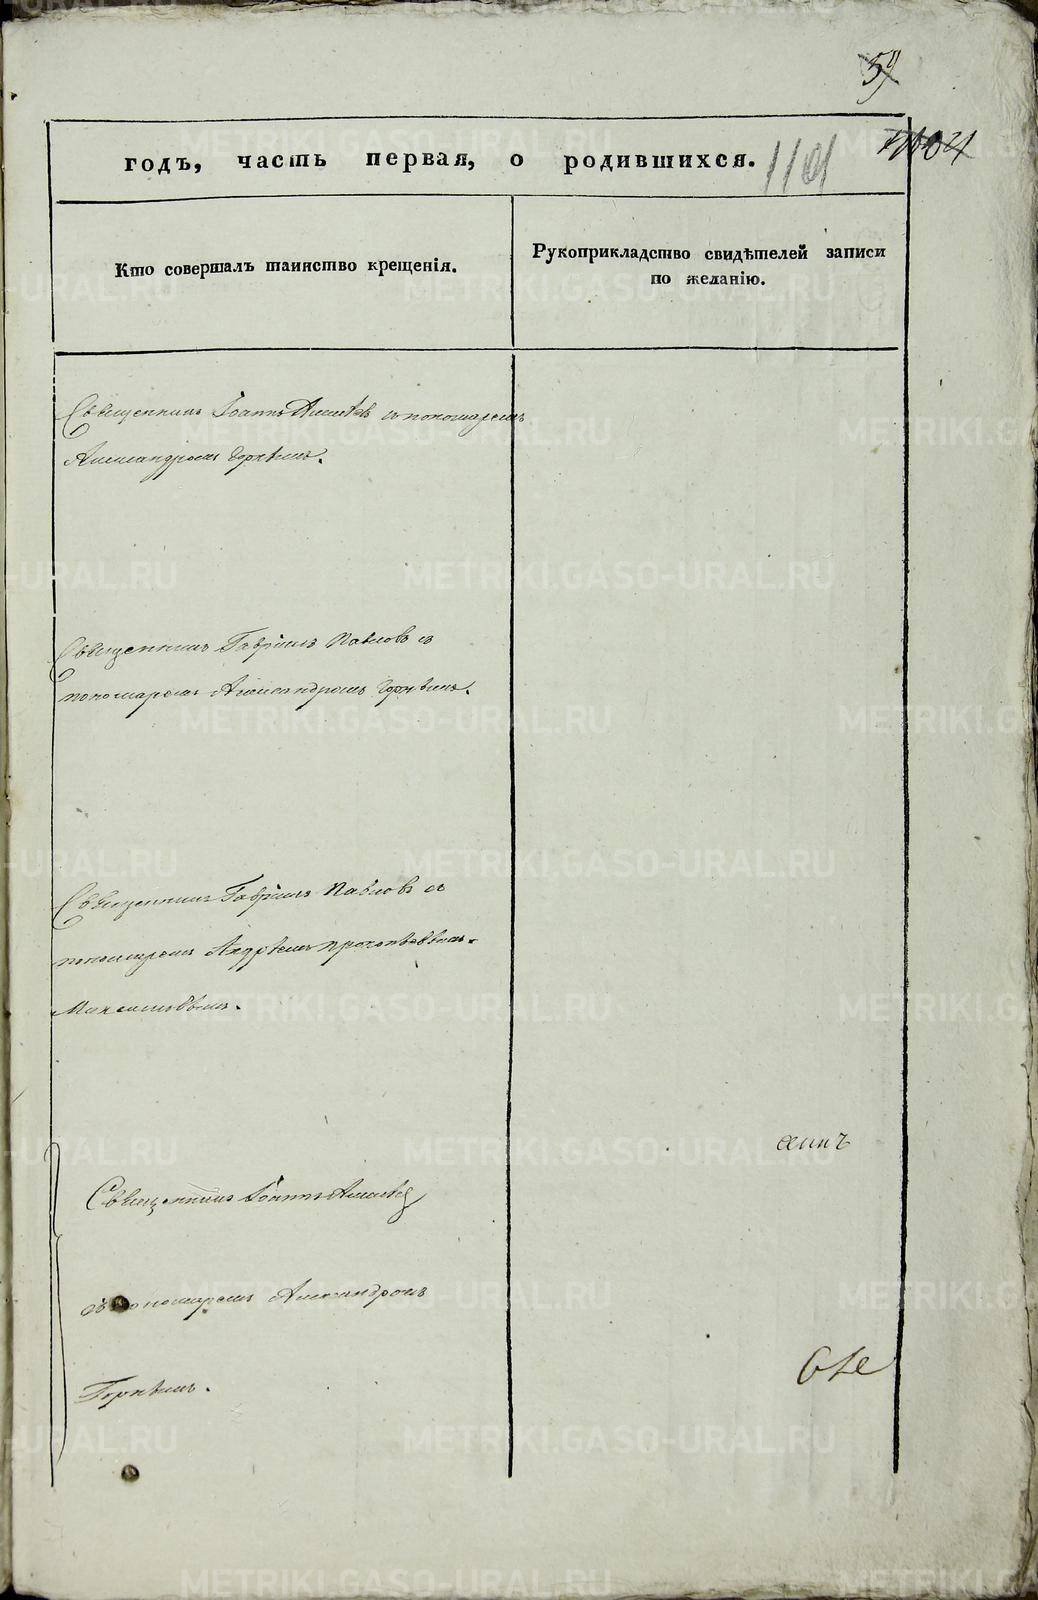 59
1104
годъ, часть первая, о родившихся. 1101
Кто совершалъ таинство крещенія.
Рукоприкладство свидѣтелей записи
по желанію.
Священникъ Іоаннъ съ пономаремъ
Александромъ Горнѣмъ.
Священникъ Гавріилъ Павловъ съ
пономаремъ Александромъ Горнѣмъ.
Священникъ Гавріилъ Павловъ съ
пономаремъ Андрѣемъ Прокопьевымъ
Священникъ Іоаннъ
съ пономаремъ Александромъ
Горнѣмъ.
METRIKI.GASO-URAL.RU